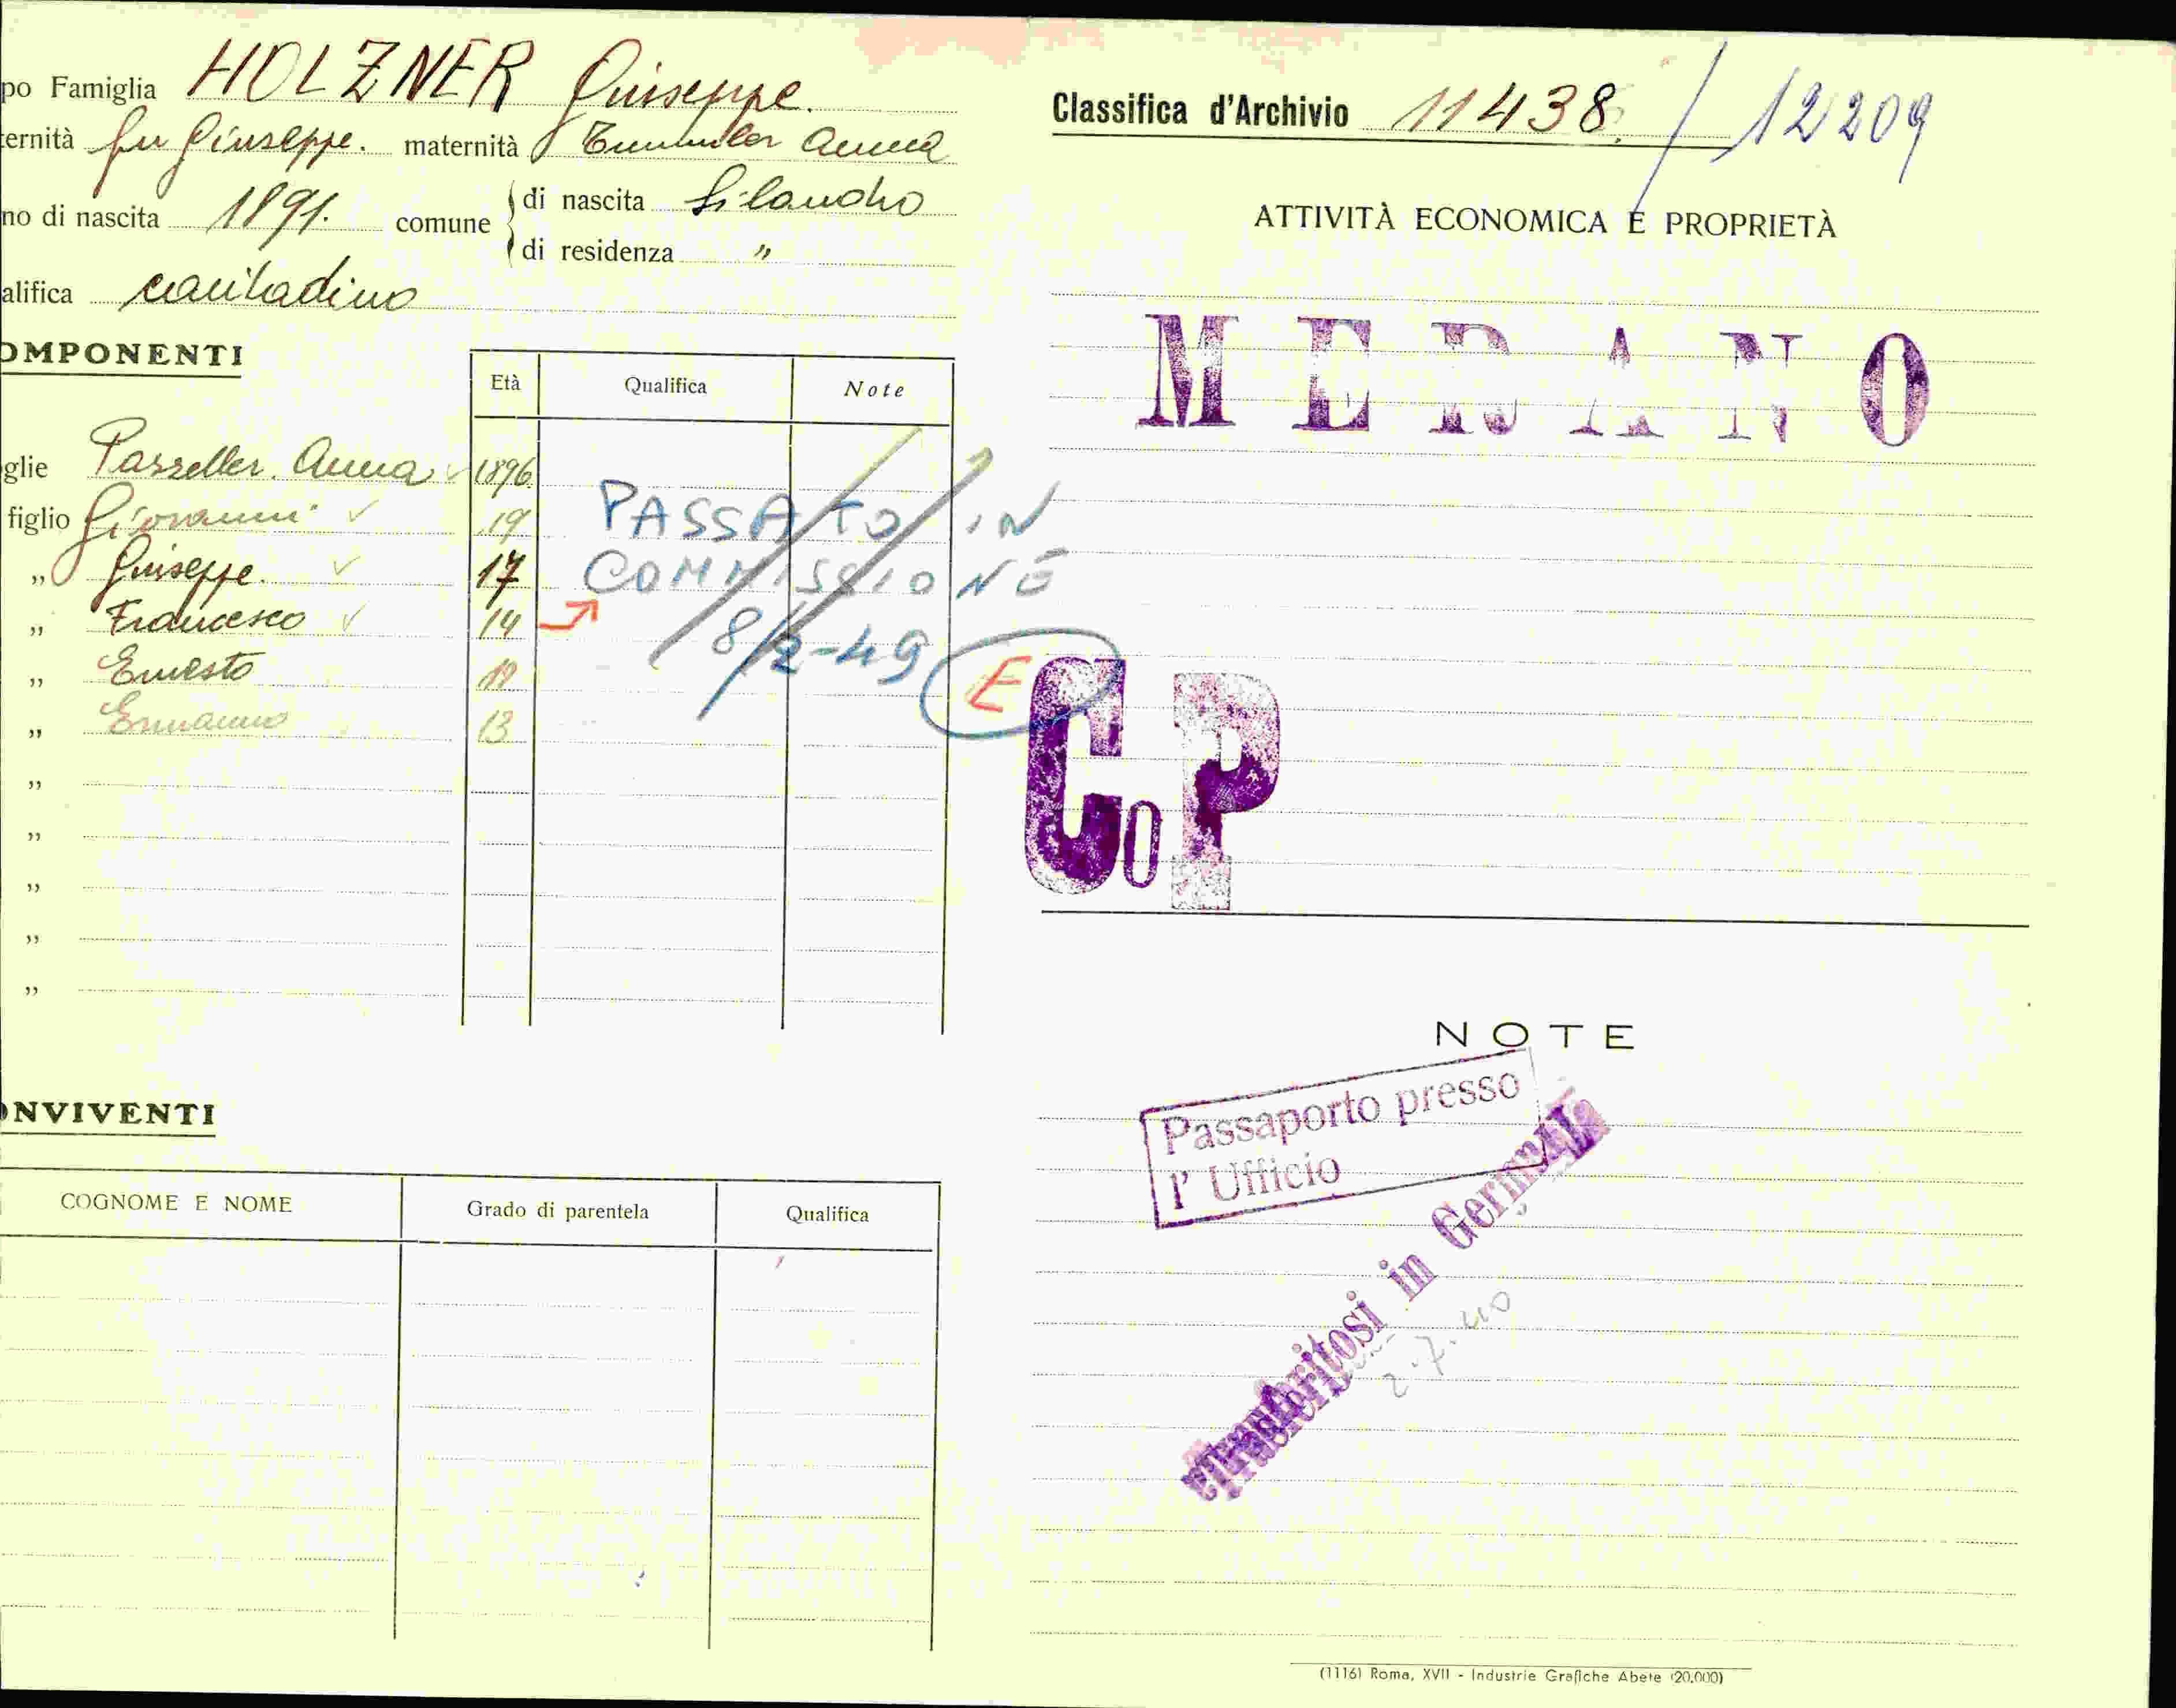 po Famiglia HOLZNER Giuseppe.
ernità fu Giuseppe. maternità Anna
no di nascita 1891. comune di nascita Silandro
di residenza "
alifica contadino
OMPONENTI
Età Qualifica Note
glie Anna 1896
figlio Giovanni 19
" Giuseppe. 17
" Francesco 14
" Ernesto
" Ermanno 13
"
"
"
"
"
PASSATO IN
COMMISSIONE
8/2-49 E
ONVIVENTI
COGNOME E NOME Grado di parentela Qualifica
Classifica d'Archivio 11438. / 12209
ATTIVITÀ ECONOMICA E PROPRIETÀ
MERANO
CoP
NOTE
Passaporto presso
l' Ufficio
trasferitosi in Germania
2.7.40
(1116) Roma, XVII - Industrie Grafiche Abete (20.000)